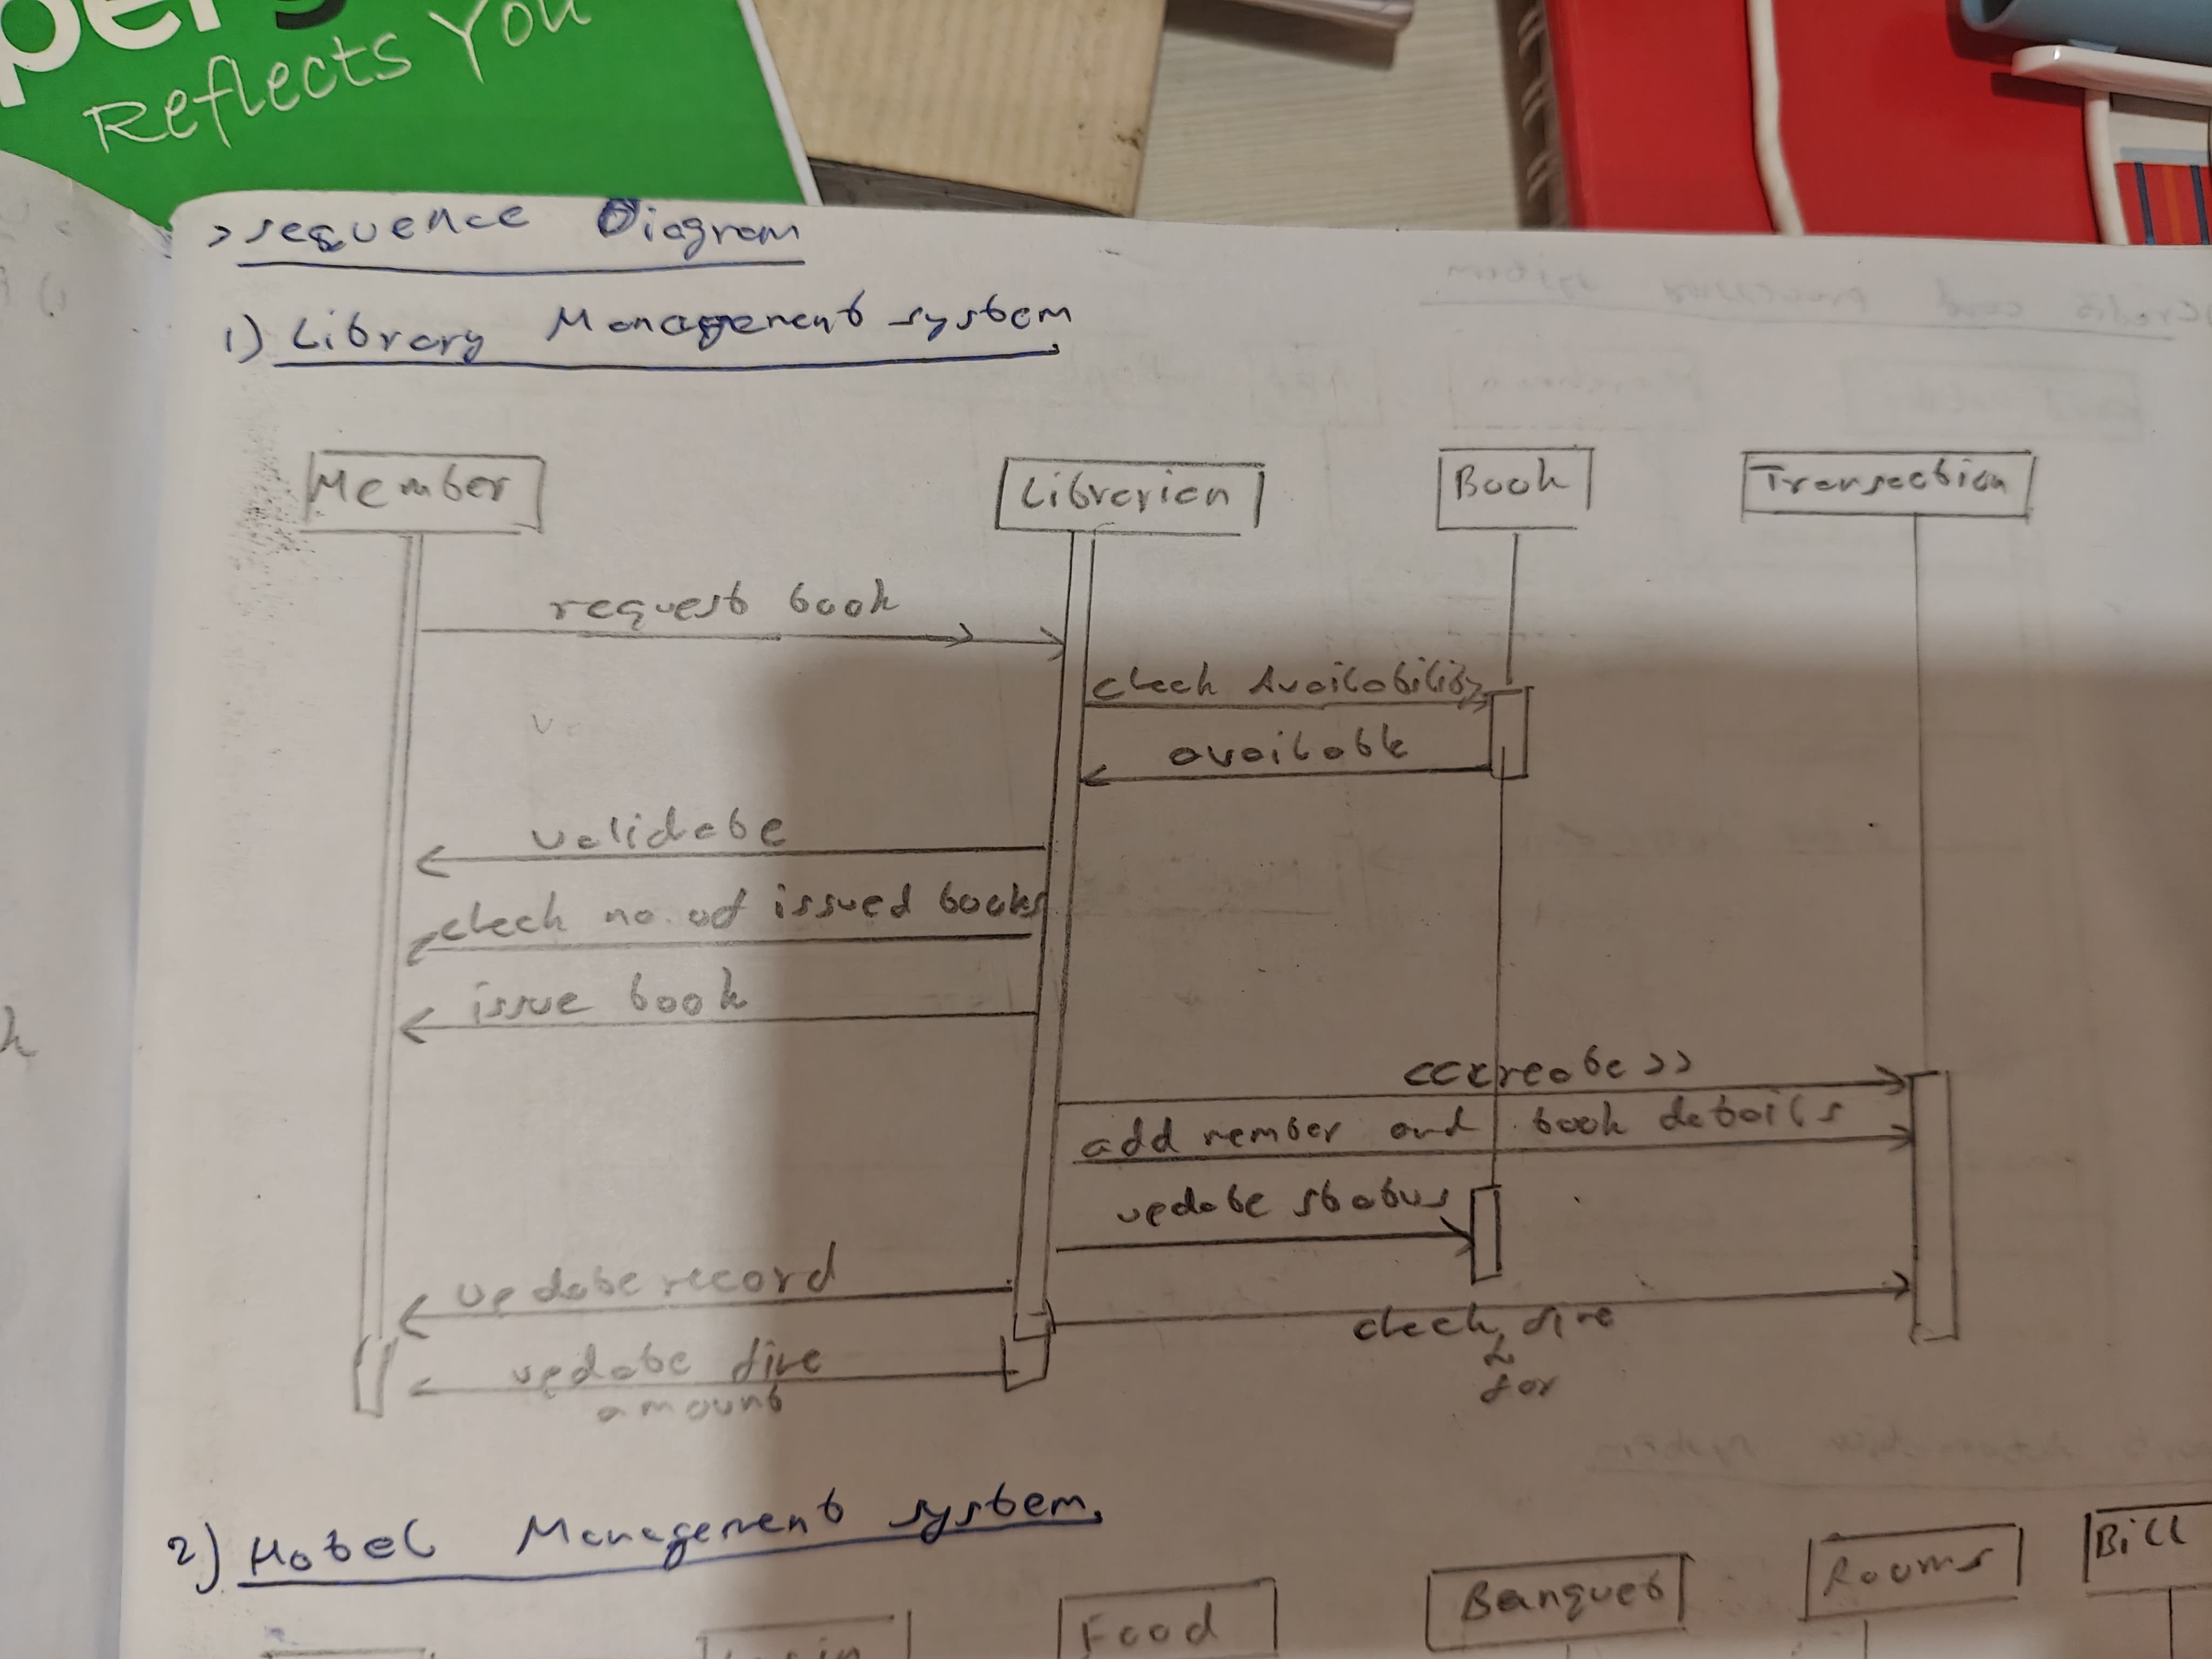 Reflects You
> sequence Diagram
1) Library Management system
Member
Librarian
Book
Transaction
request book
check Availability
available
validate
check no. of issued books
issue book
<<create>>
add member and book details
update status
update record
check fine
for
update fine
amount
2) Hotel Management system.
Food
Banquet
Rooms
Bill